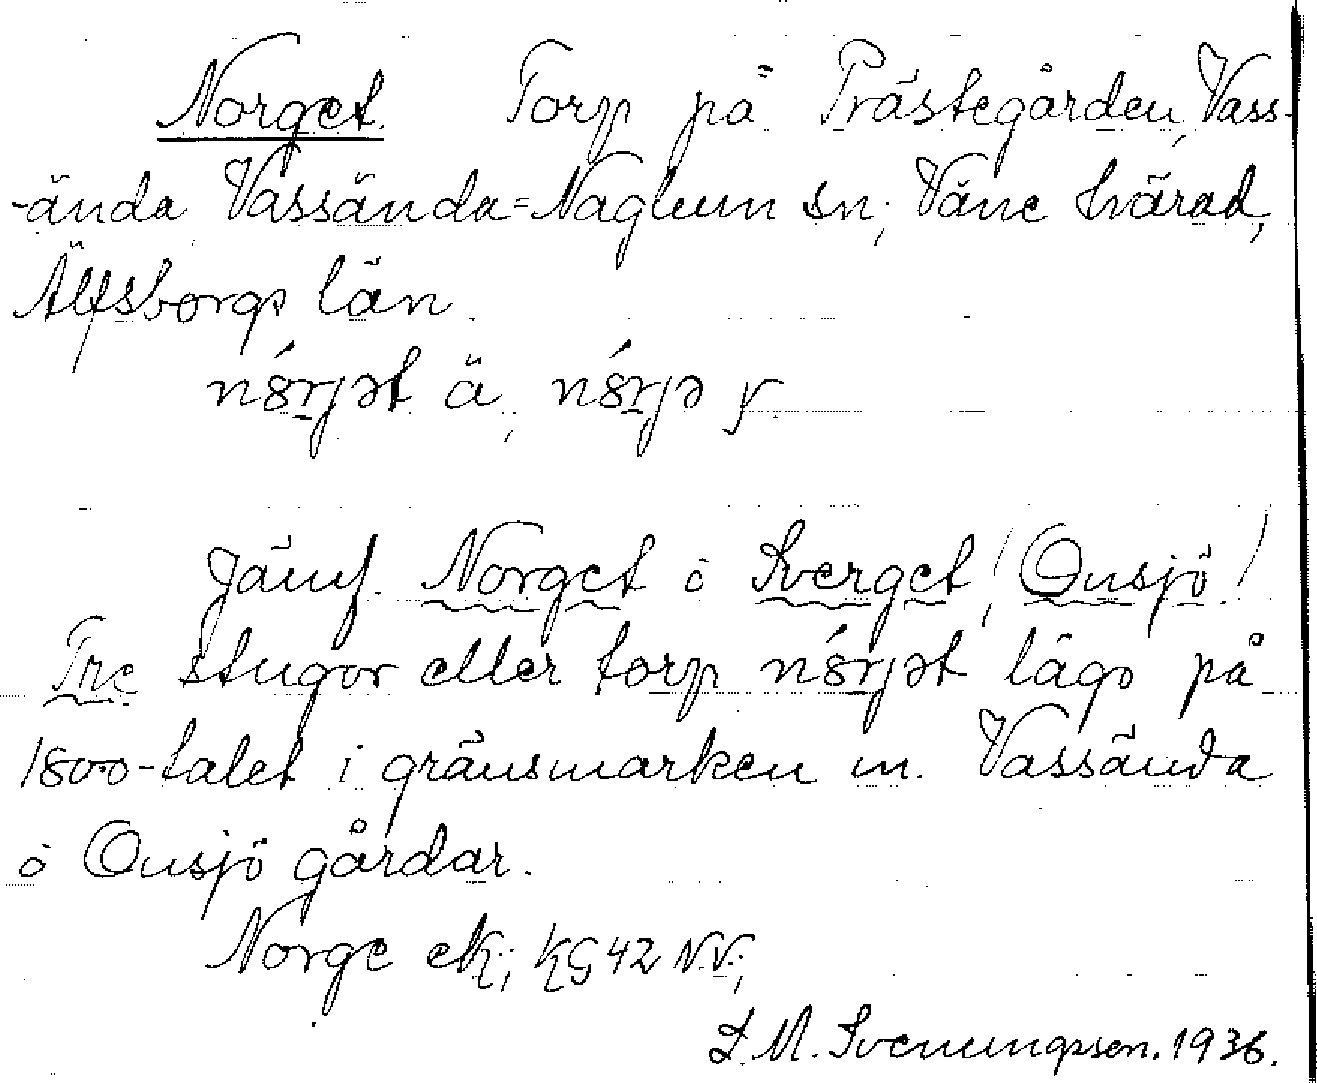 Norget. Torp på Prästegården, Vass-
-ända Vassända-Naglum sn; Väne härad,
Älfsborgs län.
ä, y.
Jämf. Norget o Sverget, (Onsjö)
Tre stugor eller torp lågo på
1800-talet i gränsmarken m. Vassända
o Onsjö gårdar.
Norge ek; kG 42 N.V.;
L. M. Svenungsson. 1936.